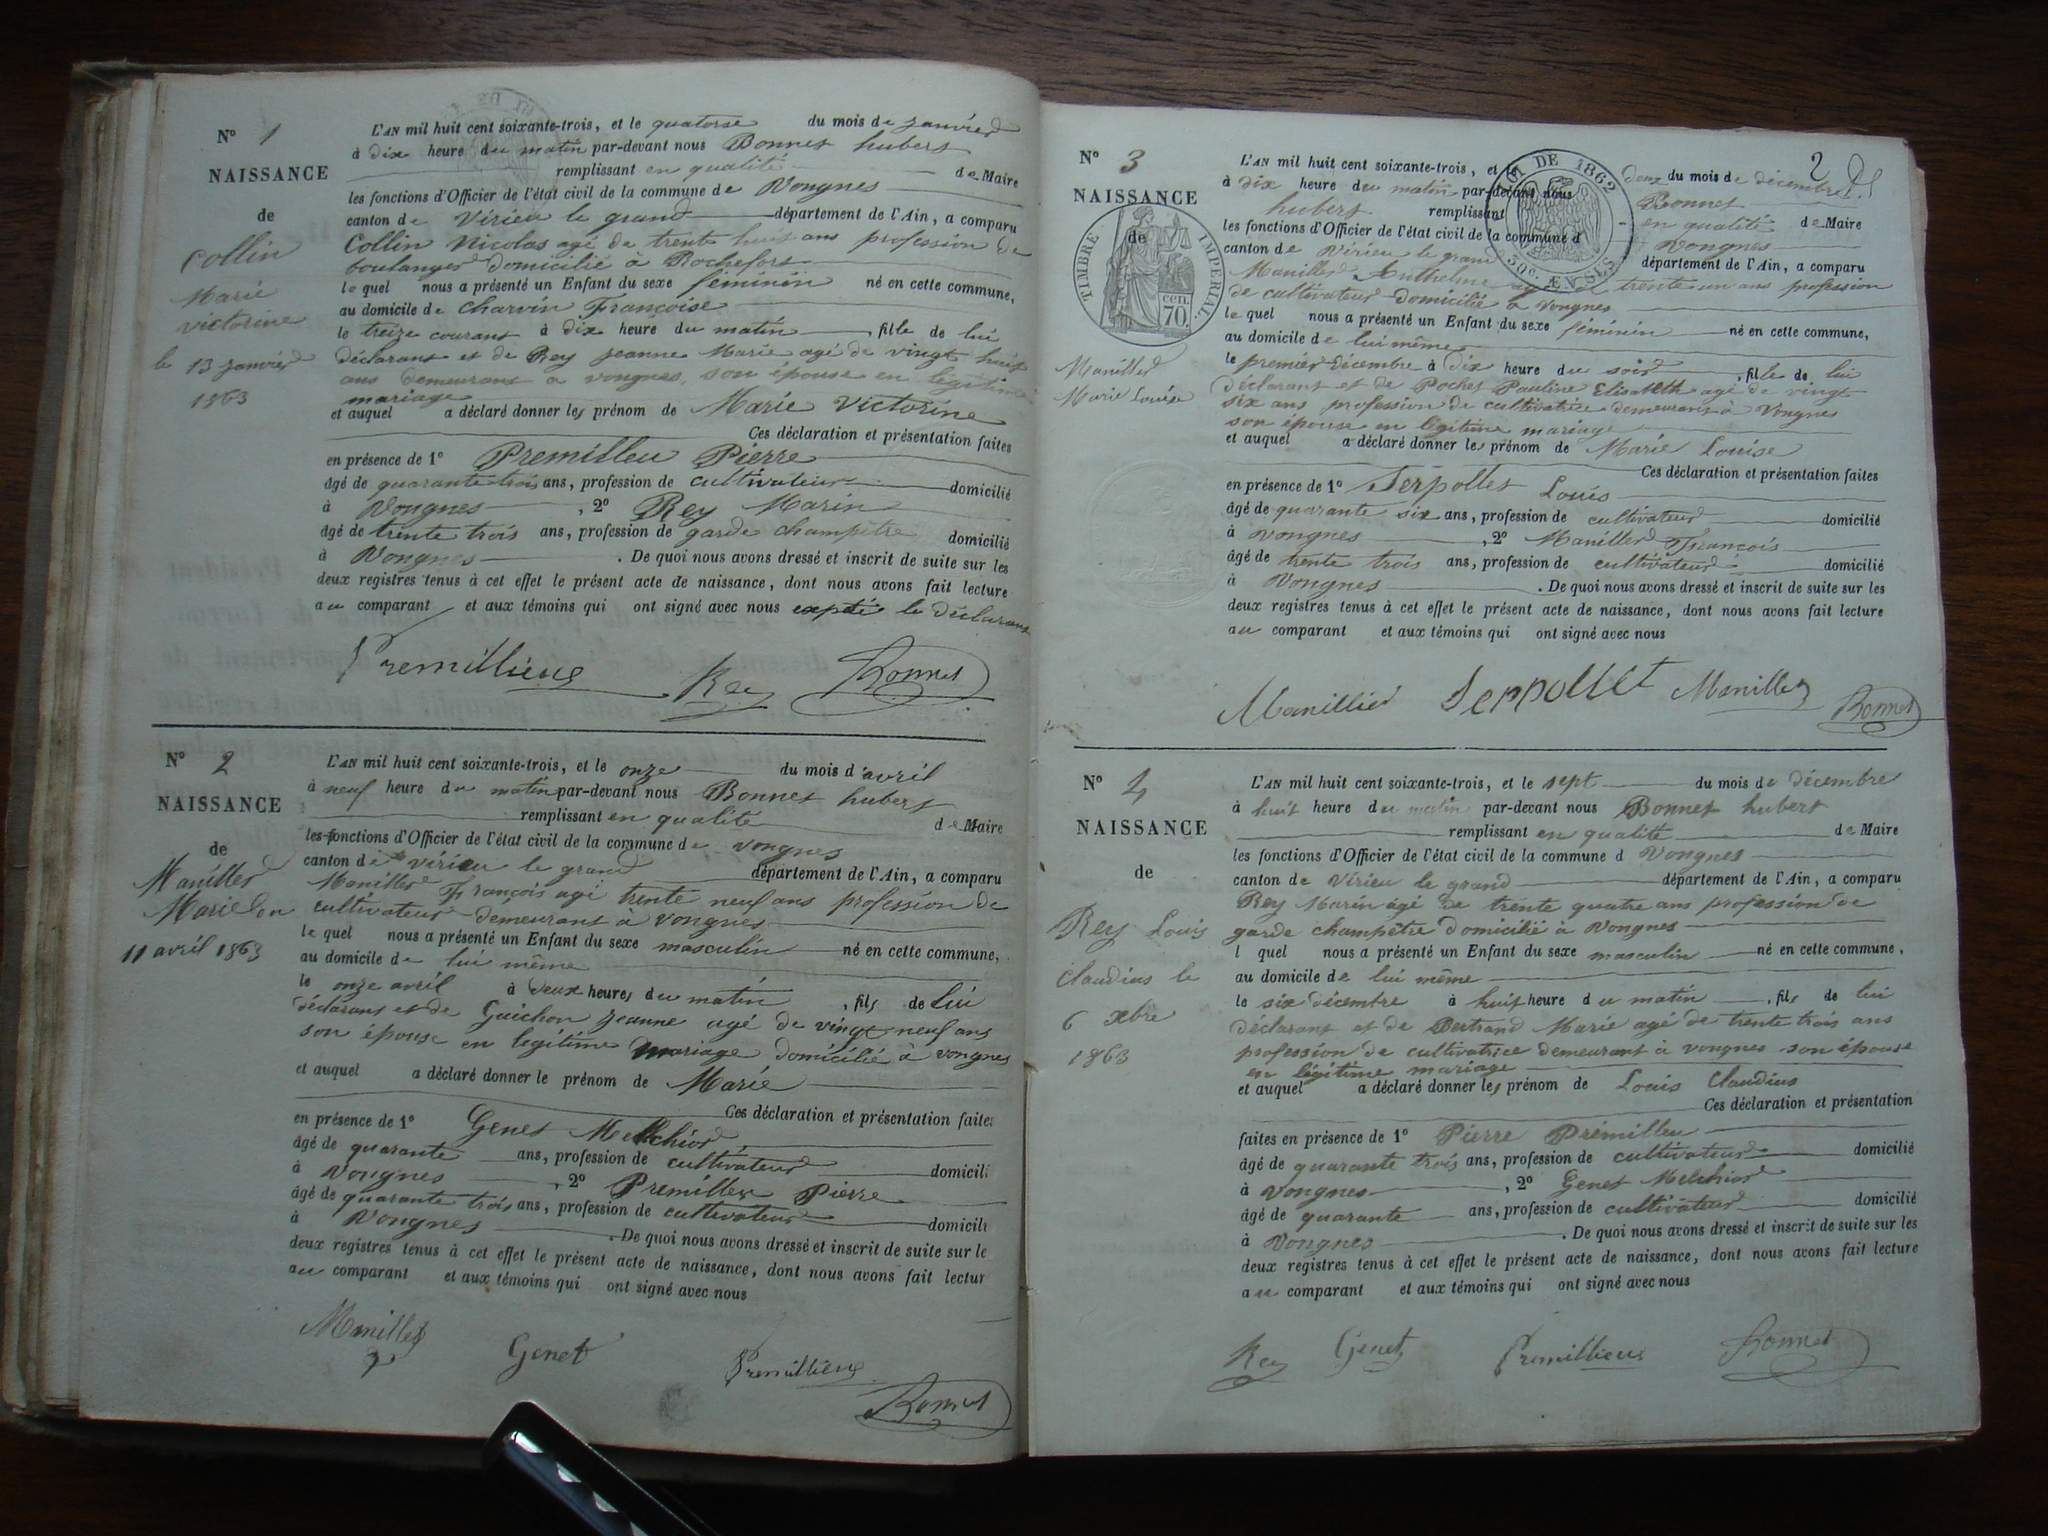 N° 1
NAISSANCE
de
Collin
Marie
victorine
le 13 janvier
1863
L'AN mil huit cent soixante-trois, et le quatorse du mois de janvier
à dix heure du matin par-devant nous Bonnet hubert
remplissant en qualité de Maire
les fonctions d'Officier de l'état civil de la commune de Vongnes
canton de Virieu le grand département de l'Ain, a comparu
Collin Nicolas agé de trente huit ans profession de
boulanger domicilié à Rochefort
le quel nous a présenté un Enfant du sexe féminin né en cette commune,
au domicile de charvin Françoise
le treize courant à dix heure du matin, fille de lui
déclarant et de Rey jeanne Marie agé de vingt huit
ans demeurant a vongnes, son épouse en légitime
mariage
et auquel a déclaré donner les prénom de Marie Victorine
Ces déclaration et présentation faites
en présence de 1° Premilleu Pierre
âgé de quarante trois ans, profession de cultivateur domicilié
à Vongnes, 2° Rey Marin
âgé de trente trois ans, profession de garde champêtre domicilié
à Vongnes. De quoi nous avons dressé et inscrit de suite sur les
deux registres tenus à cet effet le présent acte de naissance, dont nous avons fait lecture
au comparant et aux témoins qui ont signé avec nous expté le déclarant
Premillieux Rey Bonnet
N° 2
NAISSANCE
de
Maniller
Marie
11 avril 1863
L'AN mil huit cent soixante-trois, et le onze du mois d'avril
à neuf heure du matin par-devant nous Bonnet hubert
remplissant en qualité de Maire
les fonctions d'Officier de l'état civil de la commune de vongnes
canton de virieu le grand département de l'Ain, a comparu
Maniller François agé trente neuf ans profession de
cultivateur demeurant à vongnes
le quel nous a présenté un Enfant du sexe masculin né en cette commune,
au domicile de lui même
le onze avril à deux heures du matin, fils de lui
déclarant et de Guichon jeanne agé de vingt neuf ans
son épouse en légitime mariage domicilié à vongnes
et auquel a déclaré donner le prénom de Marie
Ces déclaration et présentation faites
en présence de 1° Genet Melchior
âgé de quarante ans, profession de cultivateur domicili
à Vongnes, 2° Premilleu Pierre
âgé de quarante trois ans, profession de cultivateur domicili
à Vongnes. De quoi nous avons dressé et inscrit de suite sur le
deux registres tenus à cet effet le présent acte de naissance, dont nous avons fait lectur
au comparant et aux témoins qui ont signé avec nous
Maniller Genet Premillieux Bonnet
2
N° 3
NAISSANCE
de
TIMBRE IMPERIAL
CEN. 70.
Maniller
Marie Louise
LOI DE 1862
50c. EN SUS
L'AN mil huit cent soixante-trois, et le deux du mois de décembre
à dix heure du matin par-devant nous Bonnet
hubert remplissant en qualité de Maire
les fonctions d'Officier de l'état civil de la commune d Vongnes
canton de Virieu le grand département de l'Ain, a comparu
Maniller Anthelme agé de trente un ans profession
de cultivateur domicilié a vongnes
le quel nous a présenté un Enfant du sexe féminin né en cette commune,
au domicile de lui même
le premier décembre à dix heure du soir, fille de lui
déclarant et de Pochet Pauline Elisabeth agé de vingt
six ans profession de cultivatrice demeurant à Vongnes
son épouse en légitime mariage
et auquel a déclaré donner les prénom de Marie Louise
Ces déclaration et présentation faites
en présence de 1° Serpollet Louis
âgé de quarante six ans, profession de cultivateur domicilié
à vongnes, 2° Maniller François
âgé de trente trois ans, profession de cultivateur domicilié
à Vongnes. De quoi nous avons dressé et inscrit de suite sur les
deux registres tenus à cet effet le présent acte de naissance, dont nous avons fait lecture
au comparant et aux témoins qui ont signé avec nous
Manillier Serpollet Maniller Bonnet
N° 4
NAISSANCE
de
Rey Louis
claudius le
6 xbre
1863
L'AN mil huit cent soixante-trois, et le sept du mois de décembre
à huit heure du matin par-devant nous Bonnet hubert
remplissant en qualité de Maire
les fonctions d'Officier de l'état civil de la commune d Vongnes
canton de Virieu le grand département de l'Ain, a comparu
Rey Marin agé de trente quatre ans profession de
garde champêtre domicilié à Vongnes
l quel nous a présenté un Enfant du sexe masculin né en cette commune,
au domicile de lui même
le six décembre à huit heure du matin, fils de lui
déclarant et de Bertrand Marie agé de trente trois ans
profession de cultivatrice demeurant à vongnes son épouse
en légitime mariage
et auquel a déclaré donner les prénom de Louis Claudius
Ces déclaration et présentation
faites en présence de 1° Pierre Prémilleu
âgé de quarante trois ans, profession de cultivateur domicilié
à Vongnes, 2° Genet Melchior
âgé de quarante ans, profession de cultivateur domicilié
à Vongnes. De quoi nous avons dressé et inscrit de suite sur les
deux registres tenus à cet effet le présent acte de naissance, dont nous avons fait lecture
au comparant et aux témoins qui ont signé avec nous
Rey Genet Premillieux Bonnet